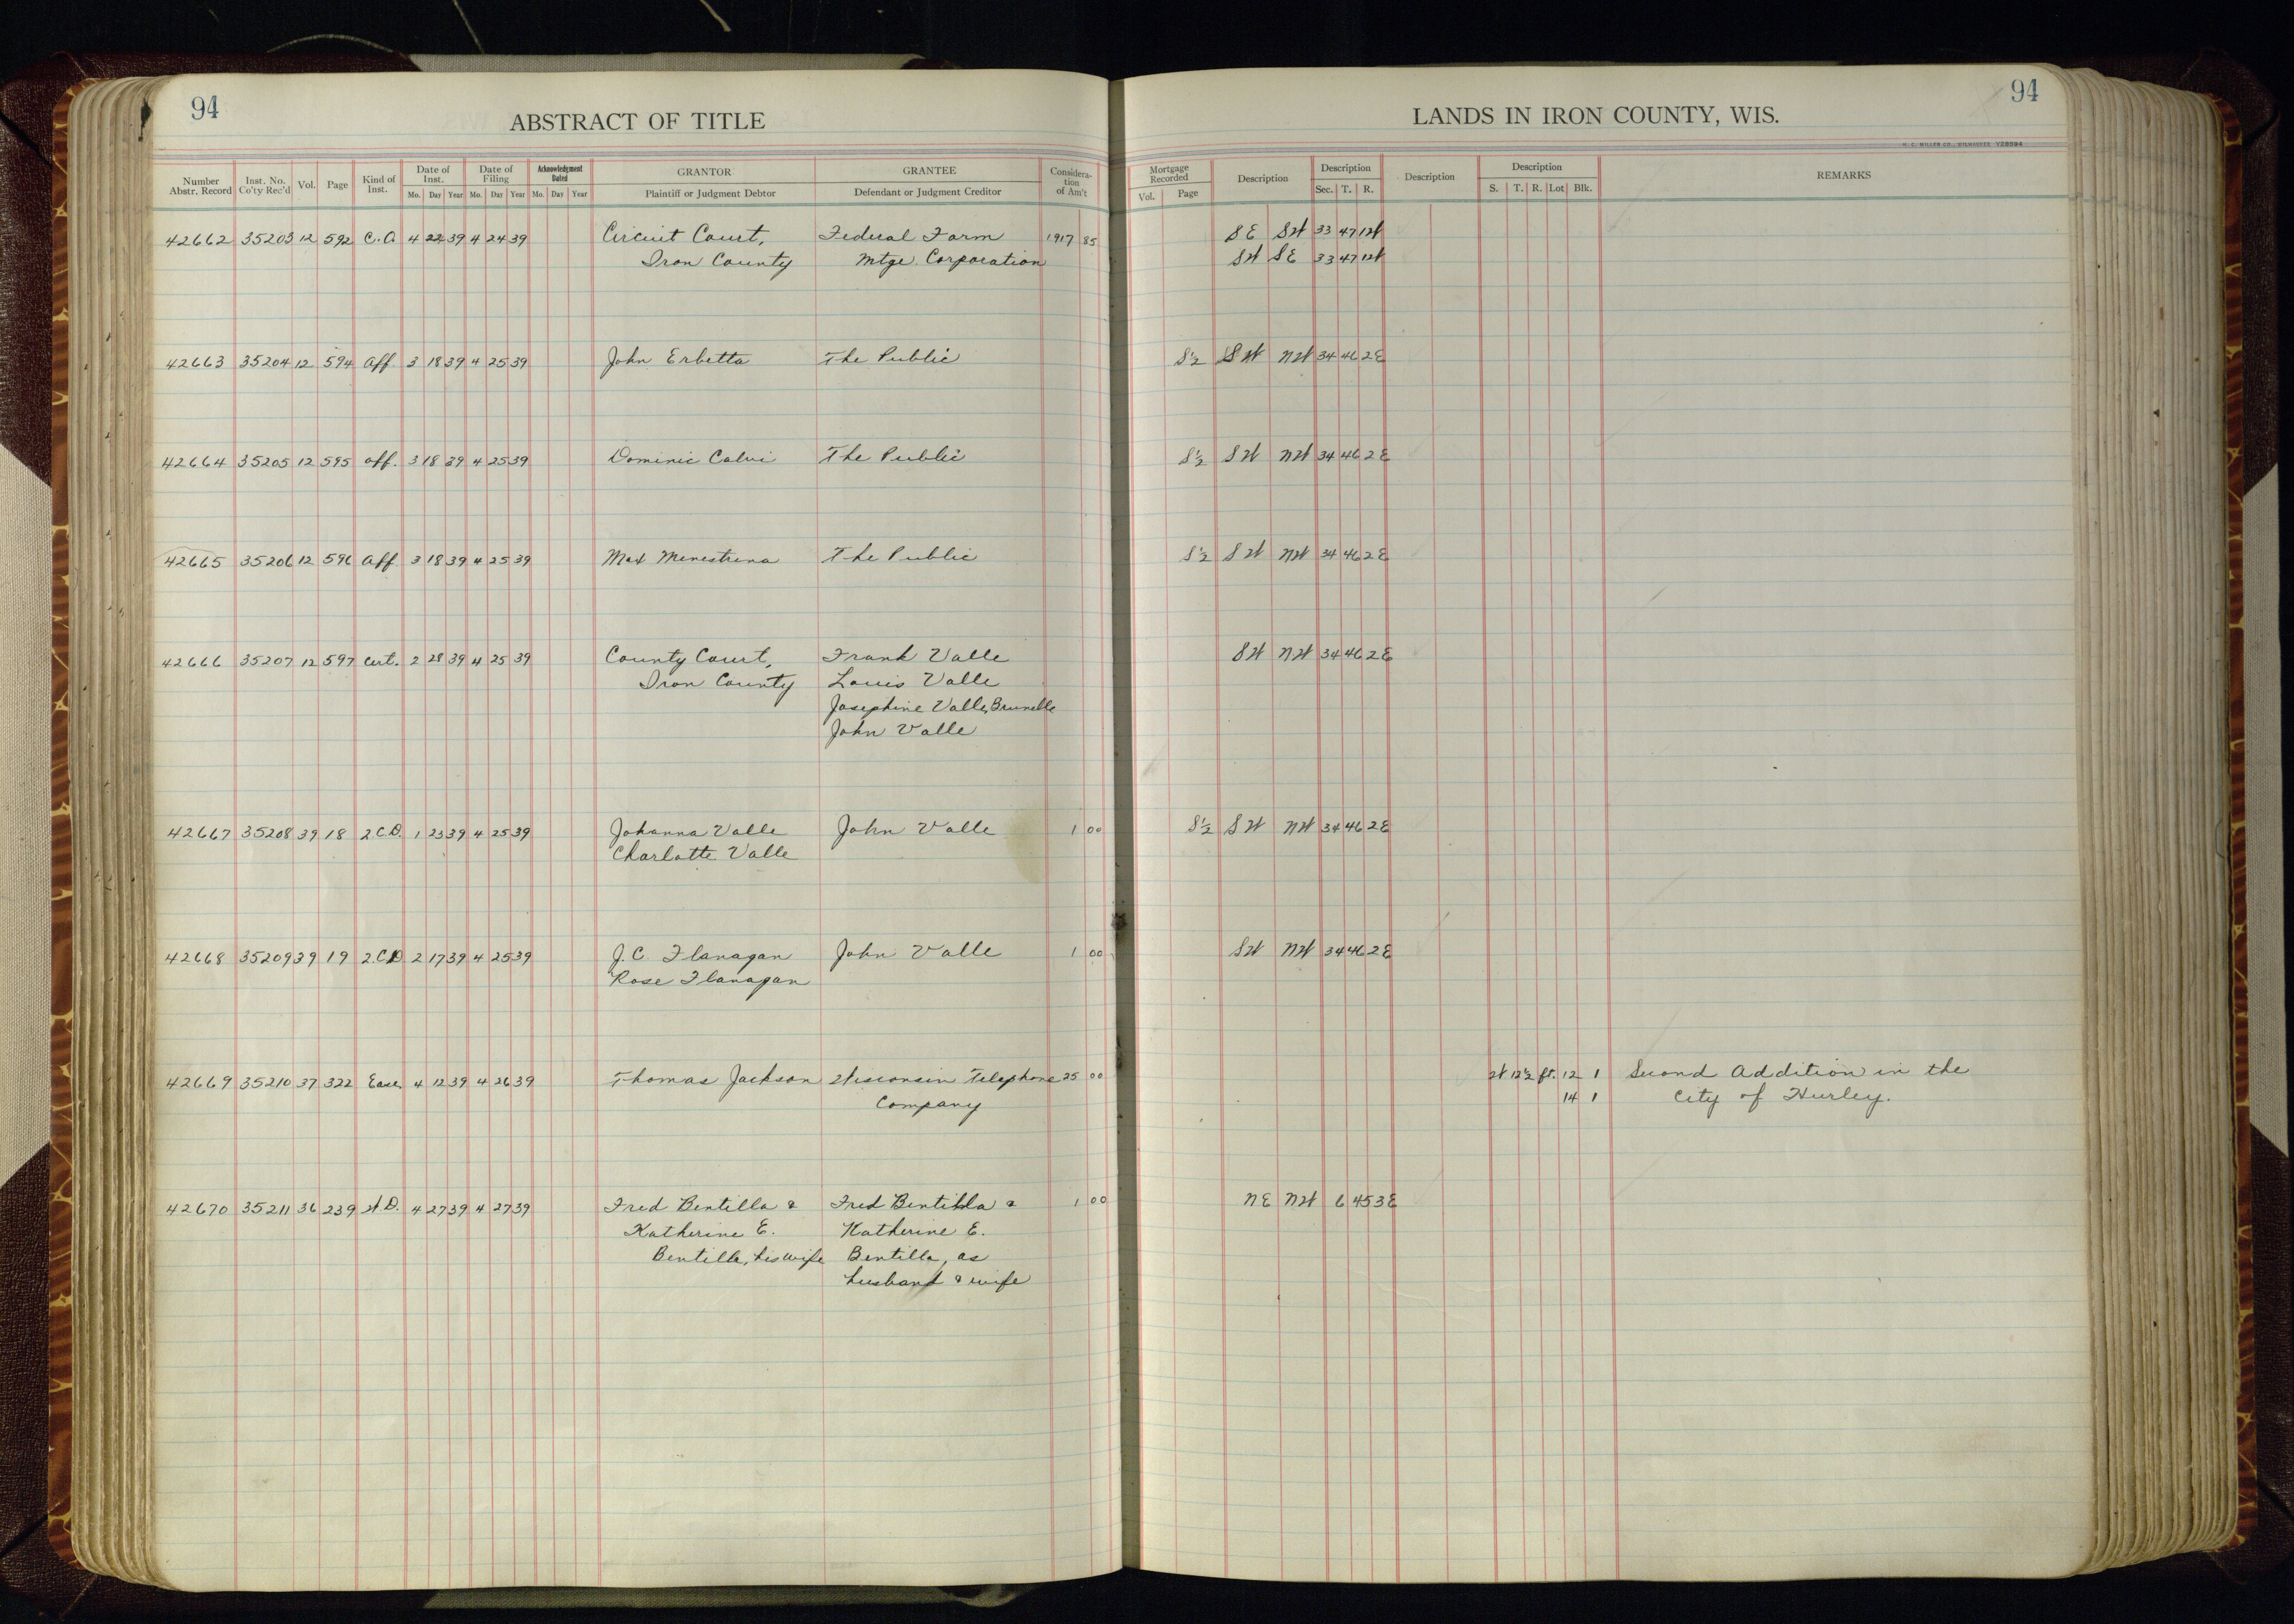 94
ABSTRACT OF TITLE
Number Abstr. Record Inst. No. Co'ty Rec'd Vol. Page Kind of Inst. Date of Inst. Mo. Day Year Date of Filing Mo. Day Year Acknowledgment Dated Mo. Day Year GRANTOR Plaintiff or Judgment Debtor GRANTEE Defendant or Judgment Creditor Considera-tion of Am't
42662 35203 12 592 C.A 4 22 39 4 24 39 Circuit Court, Federal Farm 1917 85
Iron County Mtge. Corporation
42663 35204 12 594 Aff. 3 18 39 4 25 39 John Erbetta The Public
42664 35205 12 595 Aff. 3 18 39 4 25 39 Dominic Calvi The Public
42665 35206 12 596 Aff. 3 18 39 4 25 39 Max Menestrina The Public
42666 35207 12 597 Cert. 2 28 39 4 25 39 County Court, Frank Valle
Iron County Louis Valle
Josephine Valle, Brunelle
John Valle
42667 35208 39 18 2 C.D. 1 23 39 4 25 39 Johanna Valle John Valle 1 00
Charlotte Valle
42668 35209 39 19 2 CD 2 17 39 4 25 39 J.C. Flanagan John Valle 1 00
Rose Flanagan
42669 35210 37 322 Ease. 4 12 39 4 26 39 Thomas Jackson Wisconsin Telephone 25 00
Company
42670 35211 36 239 W.D. 4 27 39 4 27 39 Fred Bentilla & Fred Bentilla & 1 00
Katherine E. Katherine E.
Bentilla, his wife Bentilla, as
husband & wife
94
LANDS IN IRON COUNTY, WIS.
H. C. MILLER CO., MILWAUKEE Y28094
Mortgage Recorded Vol. Page Description Description Sec. T. R. Description Description S. T. R. Lot Blk. REMARKS
SE SW 33 47 1W
SW SE 33 47 1W
S½ SW NW 34 46 2E
S½ SW NW 34 46 2E
S½ SW NW 34 46 2E
SW NW 34 46 2E
S½ SW NW 34 46 2E
SW NW 34 46 2E
W 12½ ft. 12 1 Second Addition in the
14 1 City of Hurley.
NE NW 6 45 3E